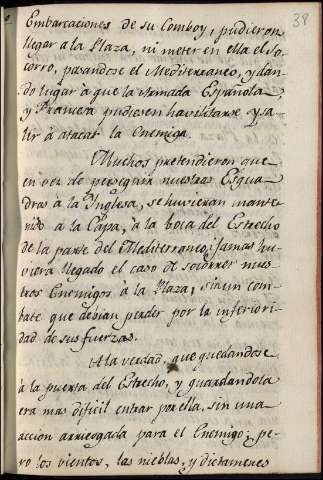 38
Embarcaciones de su Comboy, pudieron
llegar a la Plaza, ni meter en ella el So-
corro, pasandose el Mediterraneo, y dan-
do lugar à que la Armada Española
y Francesa pudiesen havilitarse y sa-
lir à atacar la Enemiga.
Muchos pretendieron que
en vez de perseguir nuestras Esqua-
dras à la Ynglesa, se huvieran mante-
nido à la Capa, à la boca del Estrecho
de la parte del Mediterraneo; jamas hu-
viera llegado el caso de socorrer nues-
tros Enemigos à la Plaza, sin un com-
bate que debian perder por la inferiori-
dad de sus fuerzas.
A la verdad, que quedandose
à la puerta del Estrecho, y guardandola
era mas dificil entrar por ella, sin una
accion arriesgada para el Enemigo; pe-
ro los vientos, las nieblas, y dictamenes